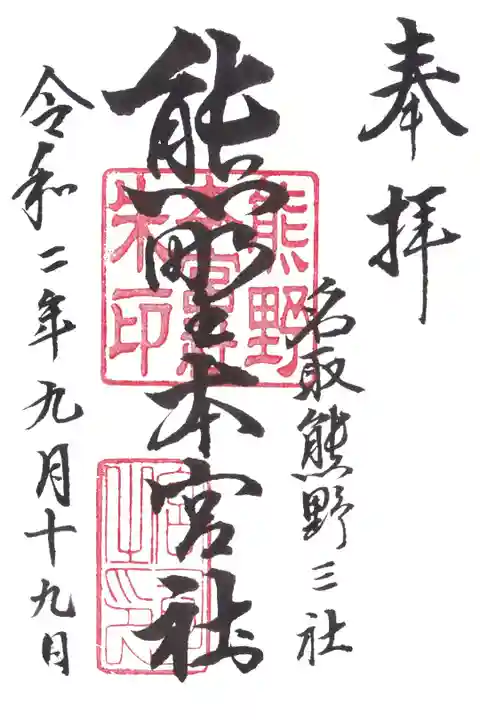 奉拝
名取熊野三社
熊野本宮社
熊野
朱印
令和二年九月十九日